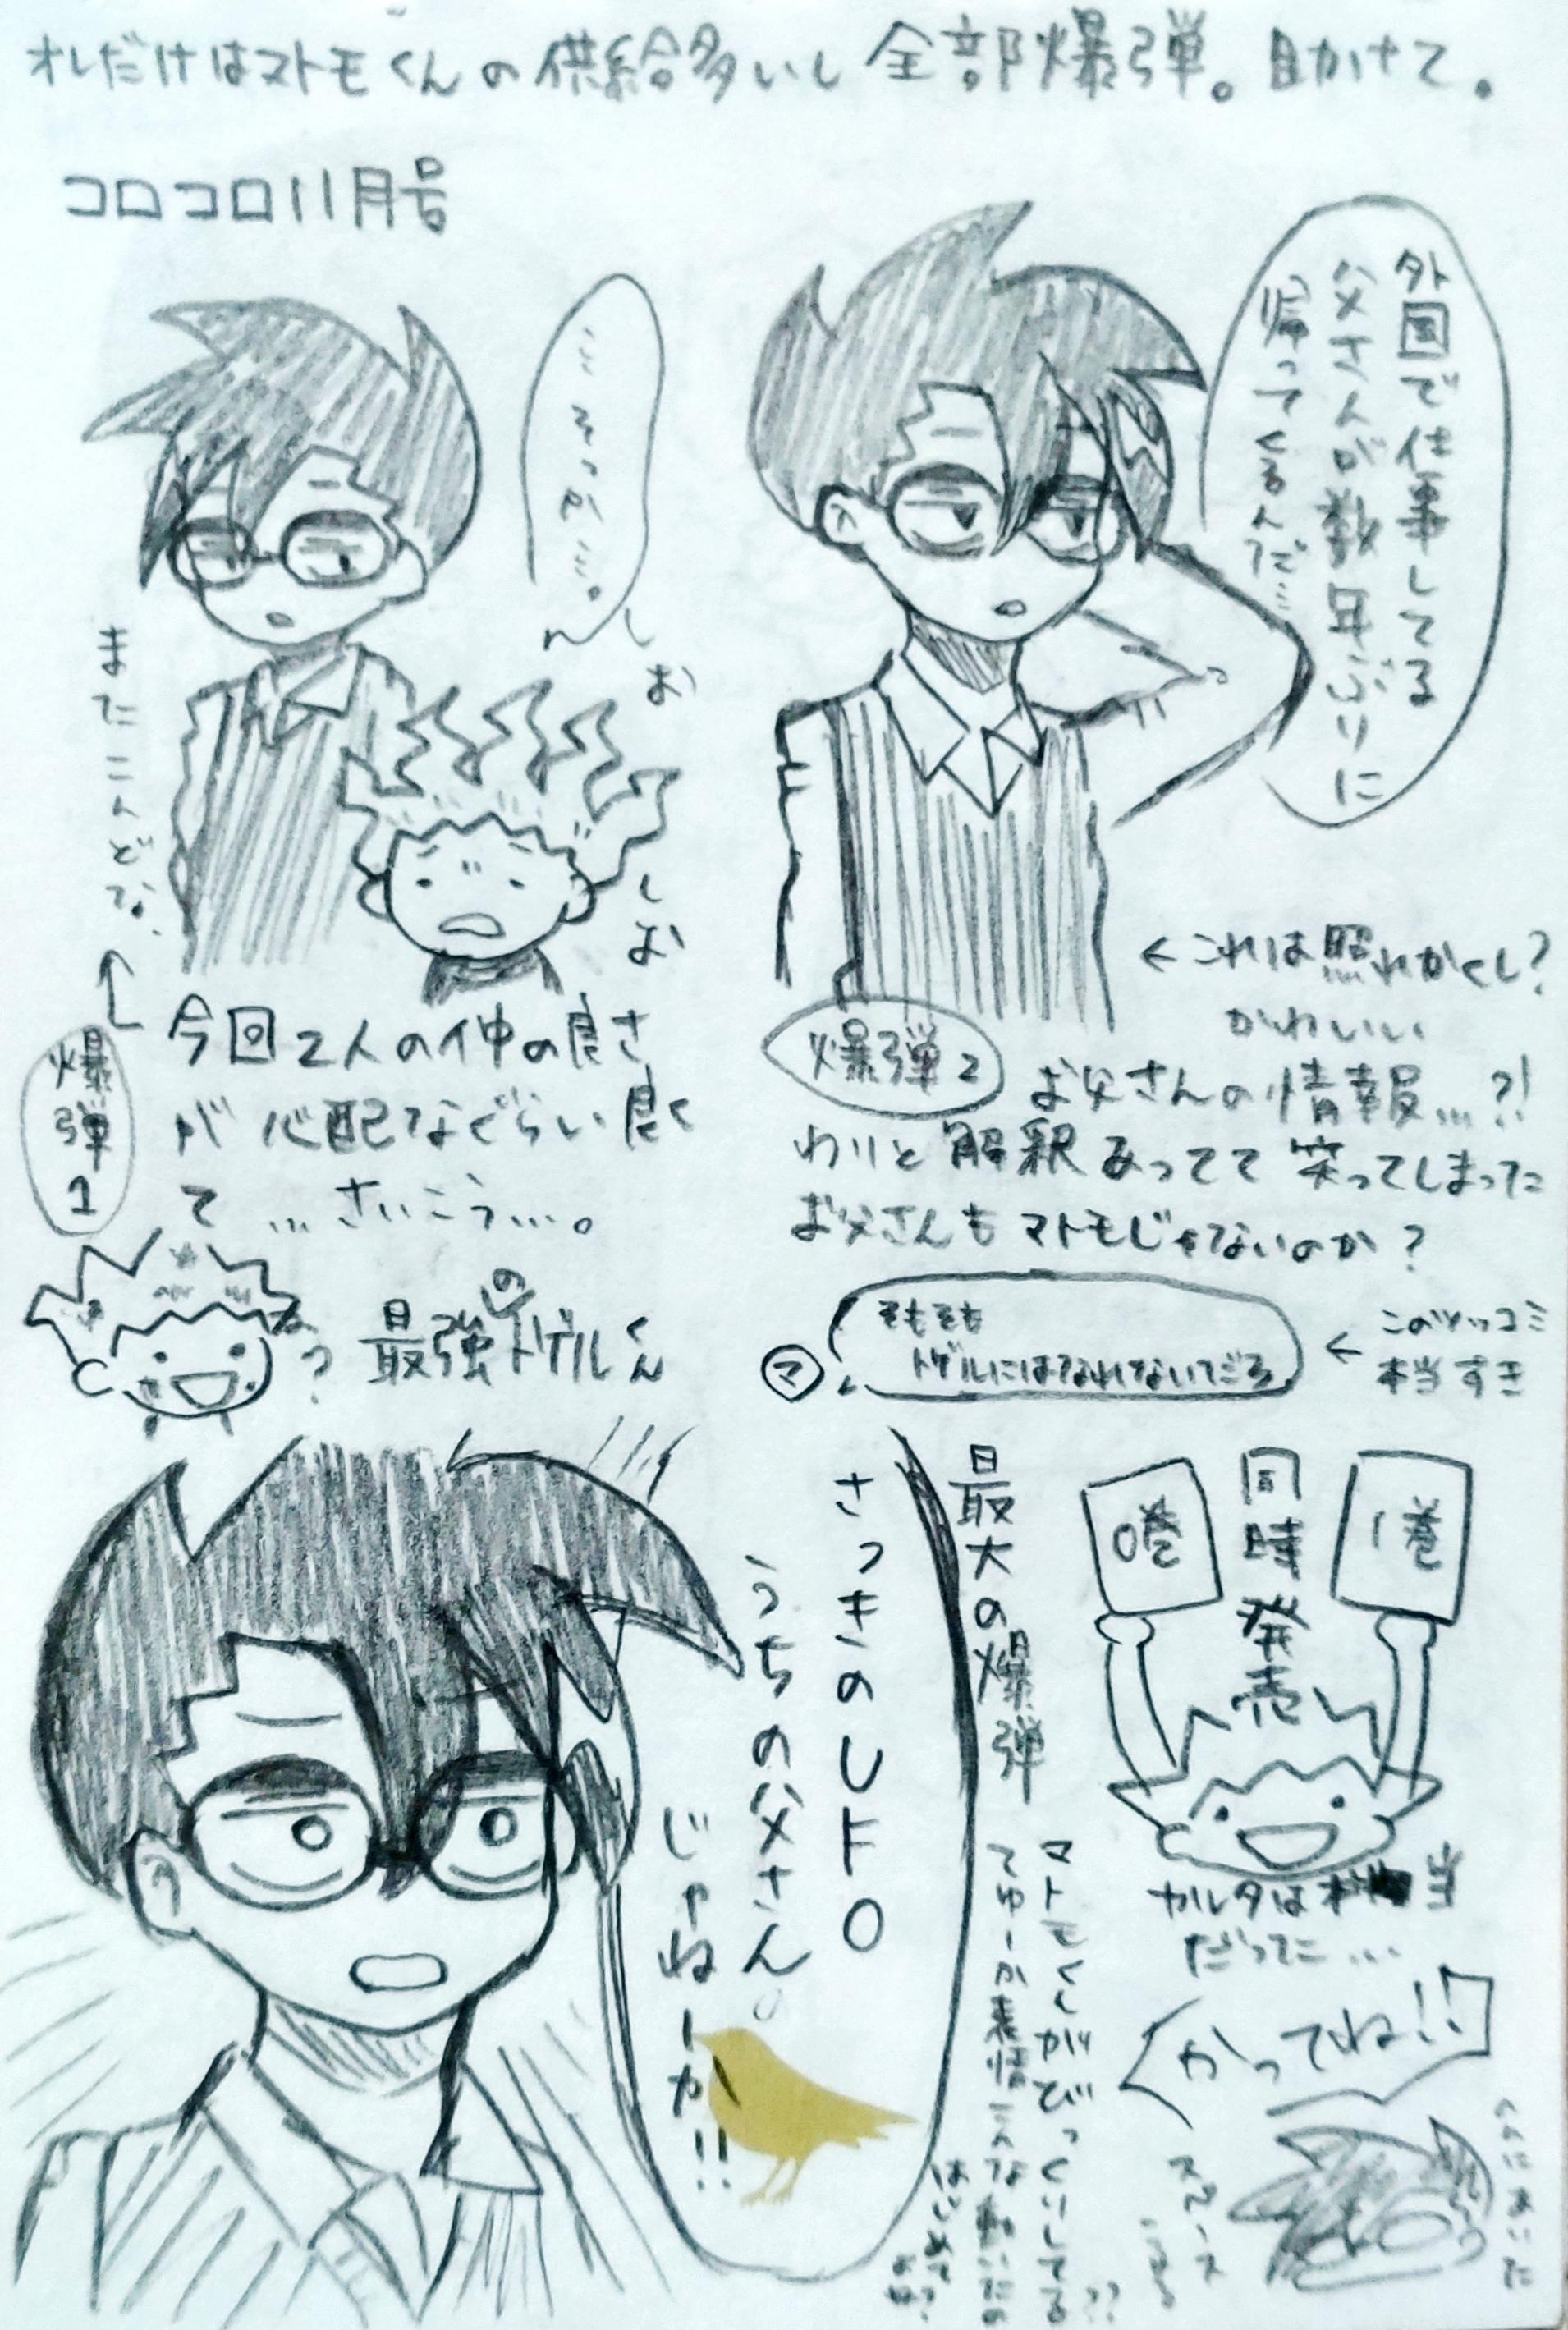 オレだけはマトモくんの供給多いし全部爆弾。助かさて。
コロコロ11月号
またこんどな。
しお
しお
外国で仕事してる
父さんが数年ぶりに
帰ってくるんだ…
←これは照れかくし?
かわいい
爆弾1
今回2人の仲の良さ
が心配なぐらい良く
て…さいこう…。
最強のトゲルくん
?
爆弾2
お父さんの情報…?!
わりと解釈あってて笑ってしまった
お父さんもマトモじゃないのか?
マ
そもそも
トゲルにはなれないてだろ
←このツッコミ
本当すき
さっきのUFO
うちの父さん
じゃねーか!!
最大の爆弾
マトモくんがびっくりしてる
てゆーか表情こんな動いたの
はじめて?
??
0巻
同時発売
1巻
カルタは本当
だってこ…
かってね!!
スペース